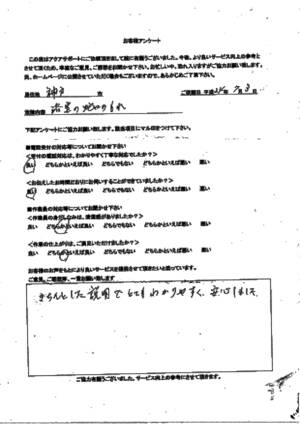 お客様アンケート
この度はアクアサポートにご依頼頂きまして誠に有難うございました。今後、より良いサービス向上の参考と
させて頂くため、率直なご意見、ご感想をお聞かせ下さい。お忙しい中、恐れ入りますがご協力お願い致します。
尚、ホームページに公開させていただく場合もございますので、あらかじめご了承下さい。
居住地 神戸 市
ご依頼日 平成 年 7月3日
依頼内容
下記アンケートにご協力お願い致します。該当項目にマル印をつけて下さい。
■電話受付の対応等についてお聞かせ下さい
<受付の電話対応は、わかりやすく丁寧な対応でしたか?>
良い どちらかといえば良い どちらでもない どちらかといえば悪い 悪い
<お伝えしたお時間どおりにお伺いすることができていましたか?>
良い どちらかといえば良い どちらでもない どちらかといえば悪い 悪い
■作業員の対応等についてお聞かせ下さい
<作業員の身だしなみは、清潔感がありましたか?>
良い どちらかといえば良い どちらでもない どちらかといえば悪い 悪い
<作業の仕上がりは、ご満足いただけましたか?>
良い どちらかといえば良い どちらでもない どちらかといえば悪い 悪い
お客様のお声をもとにより良いサービスを提供させて頂きたいと思っています。
ご意見、ご感想等、一言お願い致します
きちんとした説明でとてもわかりやすく、安心しました
ご協力有難うございました。サービス向上の参考にさせて頂きます。